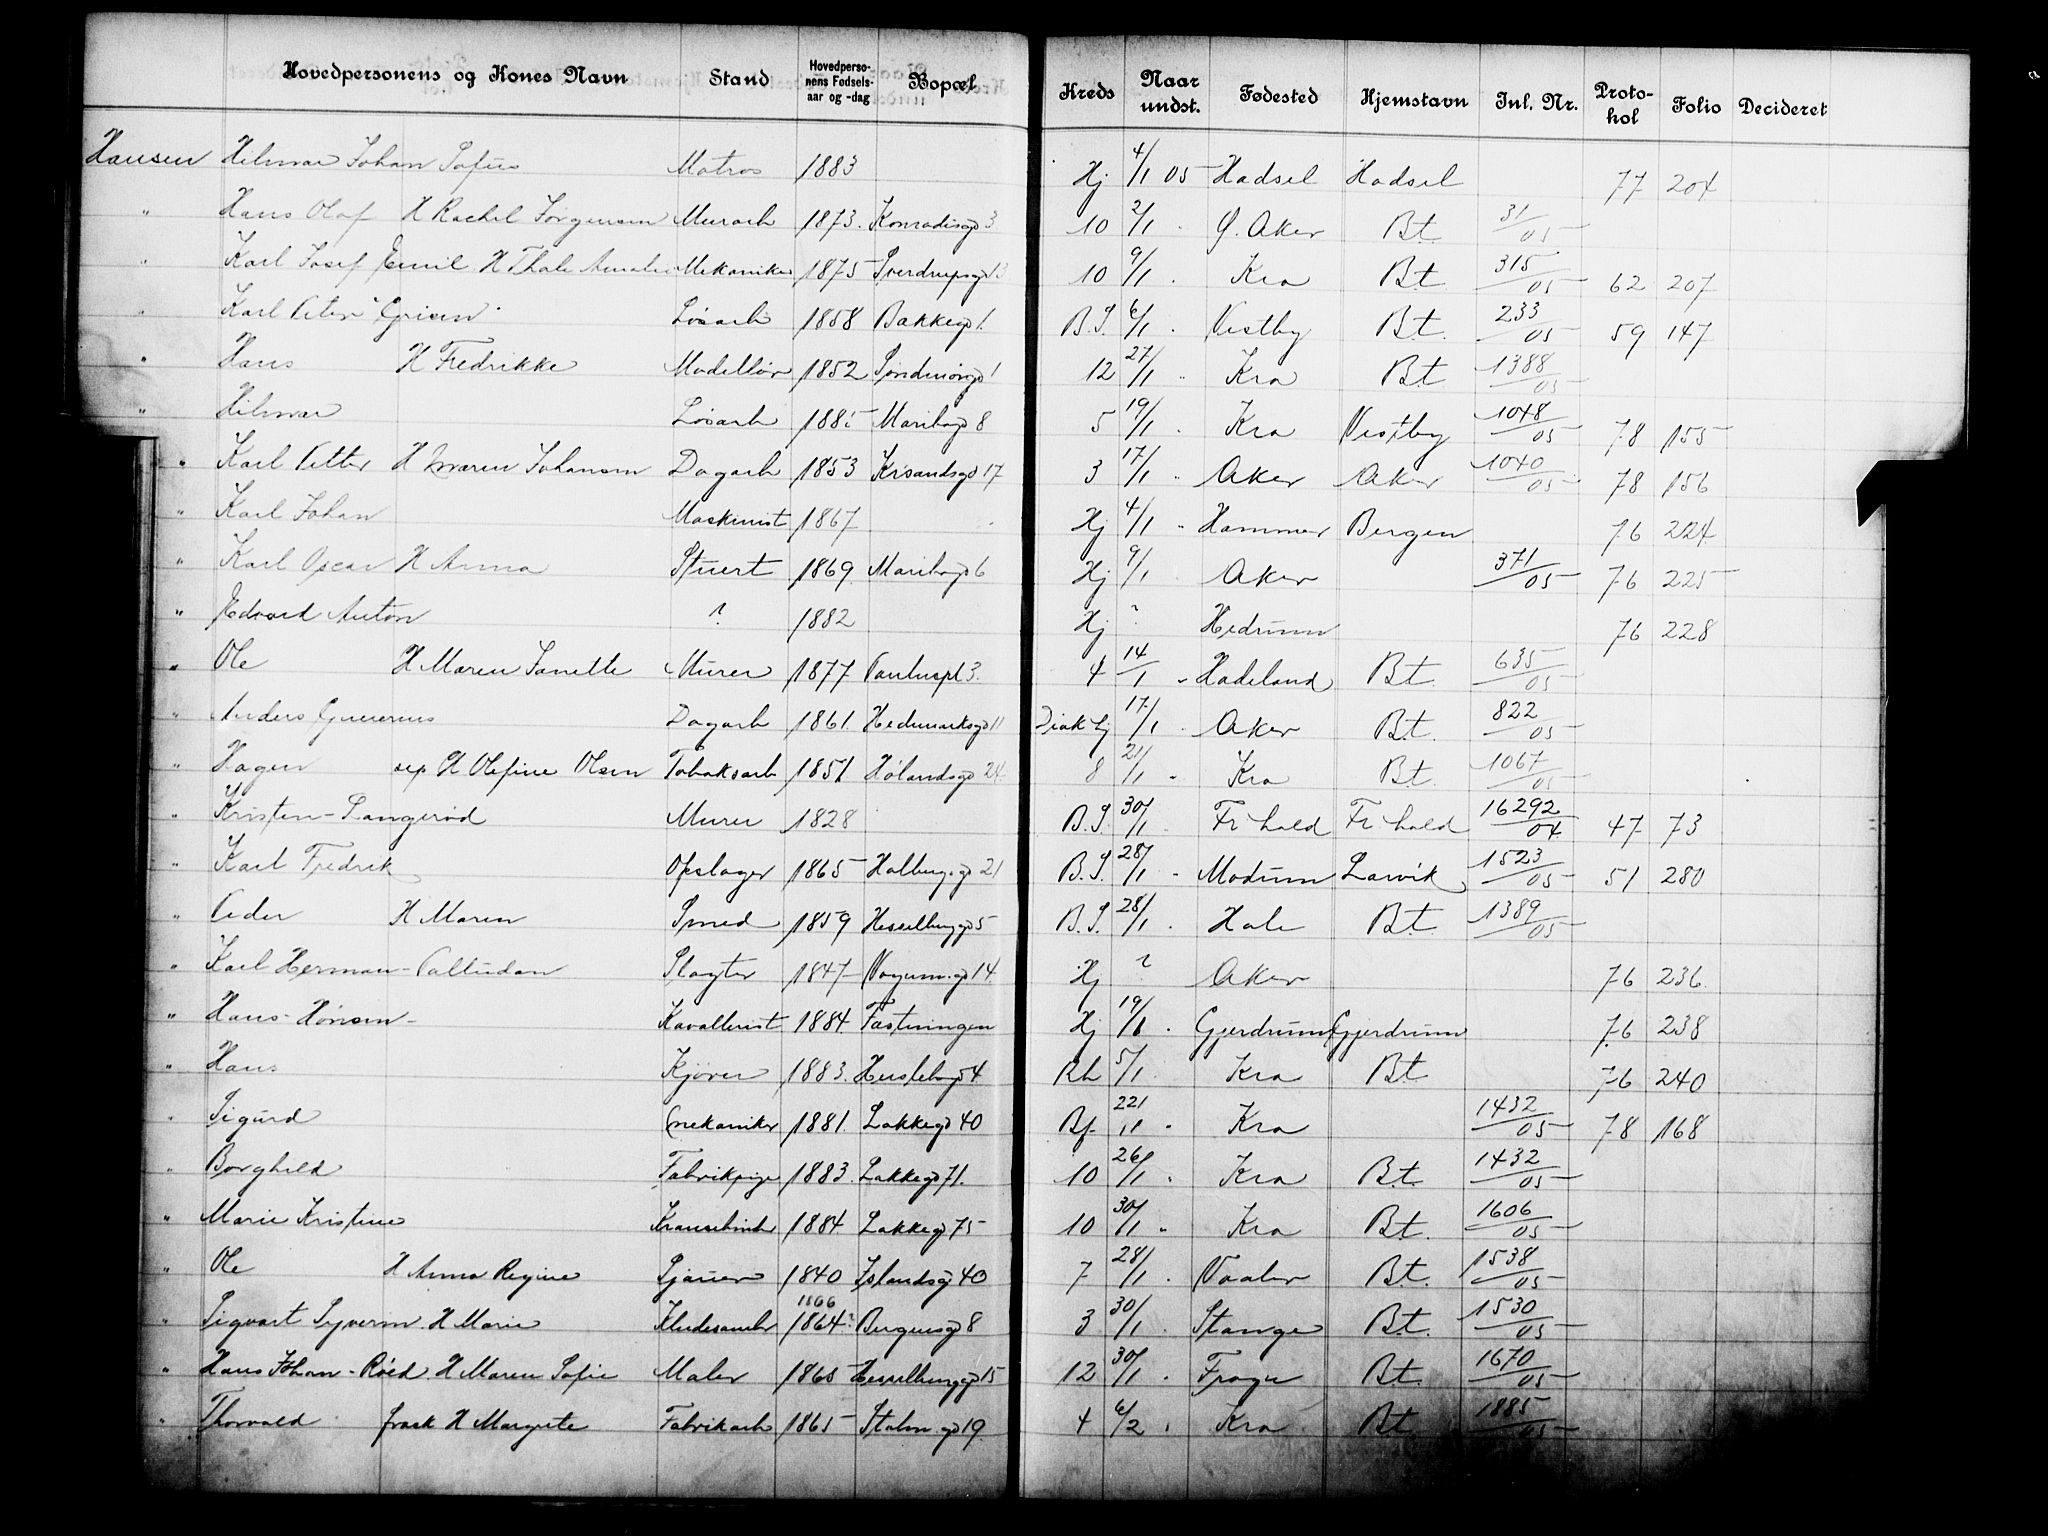 Hovedpersonens og Kones Navn Stand Hovedpersonens Fødselsaar og -dag Bopæl Kreds Naar undst. Fødested Hjemstavn Inl. Nr. Protokol Folio Decideret
Hansen Hilmar Johan Sofus Matros 1883 Hj 4/1 05 Hadsel Hadsel 77 204
" Hans Olaf H Rachel Jørgensen Murarb 1873. Konradisgd 3 10 2/1 " Ø. Aker Bt. 31/05
" Karl Josef Emil H Thale Amalie Mekaniker 1875 Sverdrupsgd 13 10 9/1 " Kra Bt. 315/05 62 207
" Karl Peter Løsarb 1858 Bakkegd 1. B.S. 6/1 " Vestby Bt. 233/05 59 147
" Hans H Fredrikke Modellør 1852 Søndmørgd 1 12 27/1 " Kra Bt. 1388/05
" Hilmar Løsarb Maribogd 8 5 19/1 " Kra Vestby 1048/05 78 155
" Karl Petter H Maren Johansen Dagarb 1853 Krsandsgd 17 3 17/1 " Aker Aker 1040/05 78 156
" Karl Johan Maskinist 1867 Hj 4/1 " Hammer Bergen 76 224
" Karl Oscar H Anna Stuert 1869 Maribogd 6 Hj 9/1 " Aker 371/05 76 225
" Edvard Anton ? 1882 Hj ? Hedrum 76 228
" Ole H Maren Janette Murer 1877 Pauluspl 3. 4 14/1 " Hadeland Bt. 635/05
" Anders Gunerius Dagarb 1861. Hedmarksgd 11 Diak hj 17/1 " Aker Bt. 822/05
" Hagen sep H Olefine Olsen Tobaksarb 1851 Hølandsgd 24. 8 21/1 " Kra Bt. 1067/05
" Kristen - Langerød Murer 1828 B.S. 30/1 " Fr hald Fr hald 16292/04 47 73
" Karl Fredrik Opslager 1865 Holbergsgd 21 B.S. 28/1 " Modum Larvik 1523/05 51 280
" Peder H Maren Smed 1859 Hesselberggd 5 B.S. 28/1 " Hole Bt. 1389/05
" Karl Herman - Paltudan Slagter 1847 Voyensgd 14 Hj ? Aker 76 236.
" Hans - Hønsen - Kavallerist 1884. Fæstningen Hj 19/1 " Gjerdrum Gjerdrum 76 238
" Hans Kjører 1883. Herslebsgd 4 Rh 5/1 Kra Bt 76 240
" Sigurd Mekaniker 1881. Lakkegd 40 Bf. Kra 1432/05 78 168
" Borghild Fabrikpige 1883. Lakkegd 71. 10 26/1 " Kra Bt. 1432/05
" Marie Kristine Kransebind 1884 Lakkegd 75 10 30/1 " Kra Bt. 1606/05
" Ole H Anna Regine Sjauer 1840 Islandsgd 40 7 28/1 " Vaaler Bt. 1538/05
" Sigvart Syverin H Marie Kludesamler 1866 1864? Bergensgd 8 3 30/1 " Stange Bt. 1530/05
" Hans Johan - Røed H Maren Sofie Maler 1865 Hesselberggd 15 12 30/1 " Frogn Bt. 1670/05
" Thorvald frask H Margrete Fabrikarb 1865 Stolm gd 19 4 6/2 " Kra Bt 1885/05